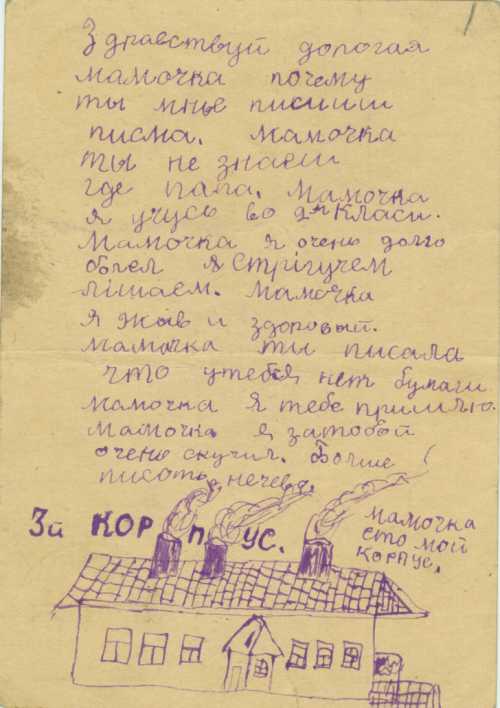 Здравствуй дорогая
мамочка почему
ты мнье писиши
писма. мамочка
ты не знаеш
где папа. мамочка
я учусь во 2ᵐ класи.
мамочка я очень долго
облел я стрігучем
лішаем. мамочка
я жыв и здоровый.
мамочка ты писала
что утебя нет бумаги
мамочка я тебе пришлю.
мамочка я затобой
очень скучил. Болше
писать нечево.
3й КОРПУС.
мамочка
ето мой
корпус.